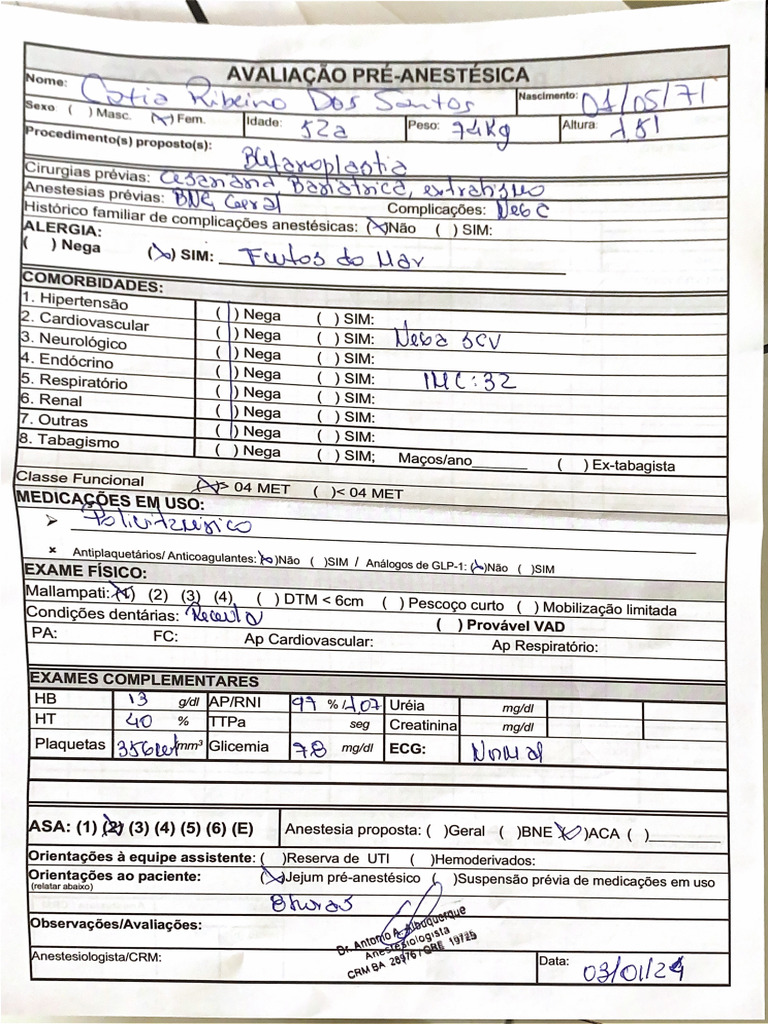 AVALIAÇÃO PRÉ-ANESTÉSICA
Nome: Catia Ribeiro Dos Santos Nascimento: 01/05/71
Sexo ( ) Masc. (x) Fem. Idade: 52a Peso: 74Kg Altura: 1,51
Procedimento(s) proposto(s): Blefaroplastia
Cirurgias prévias: Cesariana, Bariatrica,
Anestesias prévias: BNE, Geral Complicações: Nega
Histórico familiar de complicações anestésicas: (x)Não ( ) SIM:
ALERGIA:
( ) Nega (x) SIM: Frutos do Mar
COMORBIDADES:
1. Hipertensão ( ) Nega ( ) SIM:
2. Cardiovascular ( ) Nega ( ) SIM: Nega SCV
3. Neurológico ( ) Nega ( ) SIM:
4. Endócrino ( ) Nega ( ) SIM: IMC: 32
5. Respiratório ( ) Nega ( ) SIM:
6. Renal ( ) Nega ( ) SIM:
7. Outras ( ) Nega ( ) SIM:
8. Tabagismo ( ) Nega ( ) SIM; Maços/ano______ ( ) Ex-tabagista
Classe Funcional (x)> 04 MET ( )< 04 MET
MEDICAÇÕES EM USO:
➢ Polivitamínico
× Antiplaquetários/ Anticoagulantes: (x)Não ( )SIM / Análogos de GLP-1: (x)Não ( )SIM
EXAME FÍSICO:
Mallampati: (1) (2) (3) (4) ( ) DTM < 6cm ( ) Pescoço curto ( ) Mobilização limitada
Condições dentárias: ( ) Provável VAD
PA: FC: Ap Cardiovascular: Ap Respiratório:
EXAMES COMPLEMENTARES
HB 13 g/dl AP/RNI 97 % /1,07 Uréia mg/dl
HT 40 % TTPa seg Creatinina mg/dl
Plaquetas 356 mm³ Glicemia 78 mg/dl ECG: Normal
ASA: (1) (2) (3) (4) (5) (6) (E) Anestesia proposta: ( )Geral ( )BNE (x)ACA ( )______
Orientações à equipe assistente: ( )Reserva de UTI ( )Hemoderivados:
Orientações ao paciente: (x)Jejum pré-anestésico ( )Suspensão prévia de medicações em uso
(relatar abaixo)
8horas
Observações/Avaliações:
Dr. Antonio A. Albuquerque
Anestesiologista
CRM BA 28976 / QRE 19725
Anestesiologista/CRM: Data: 03/01/24